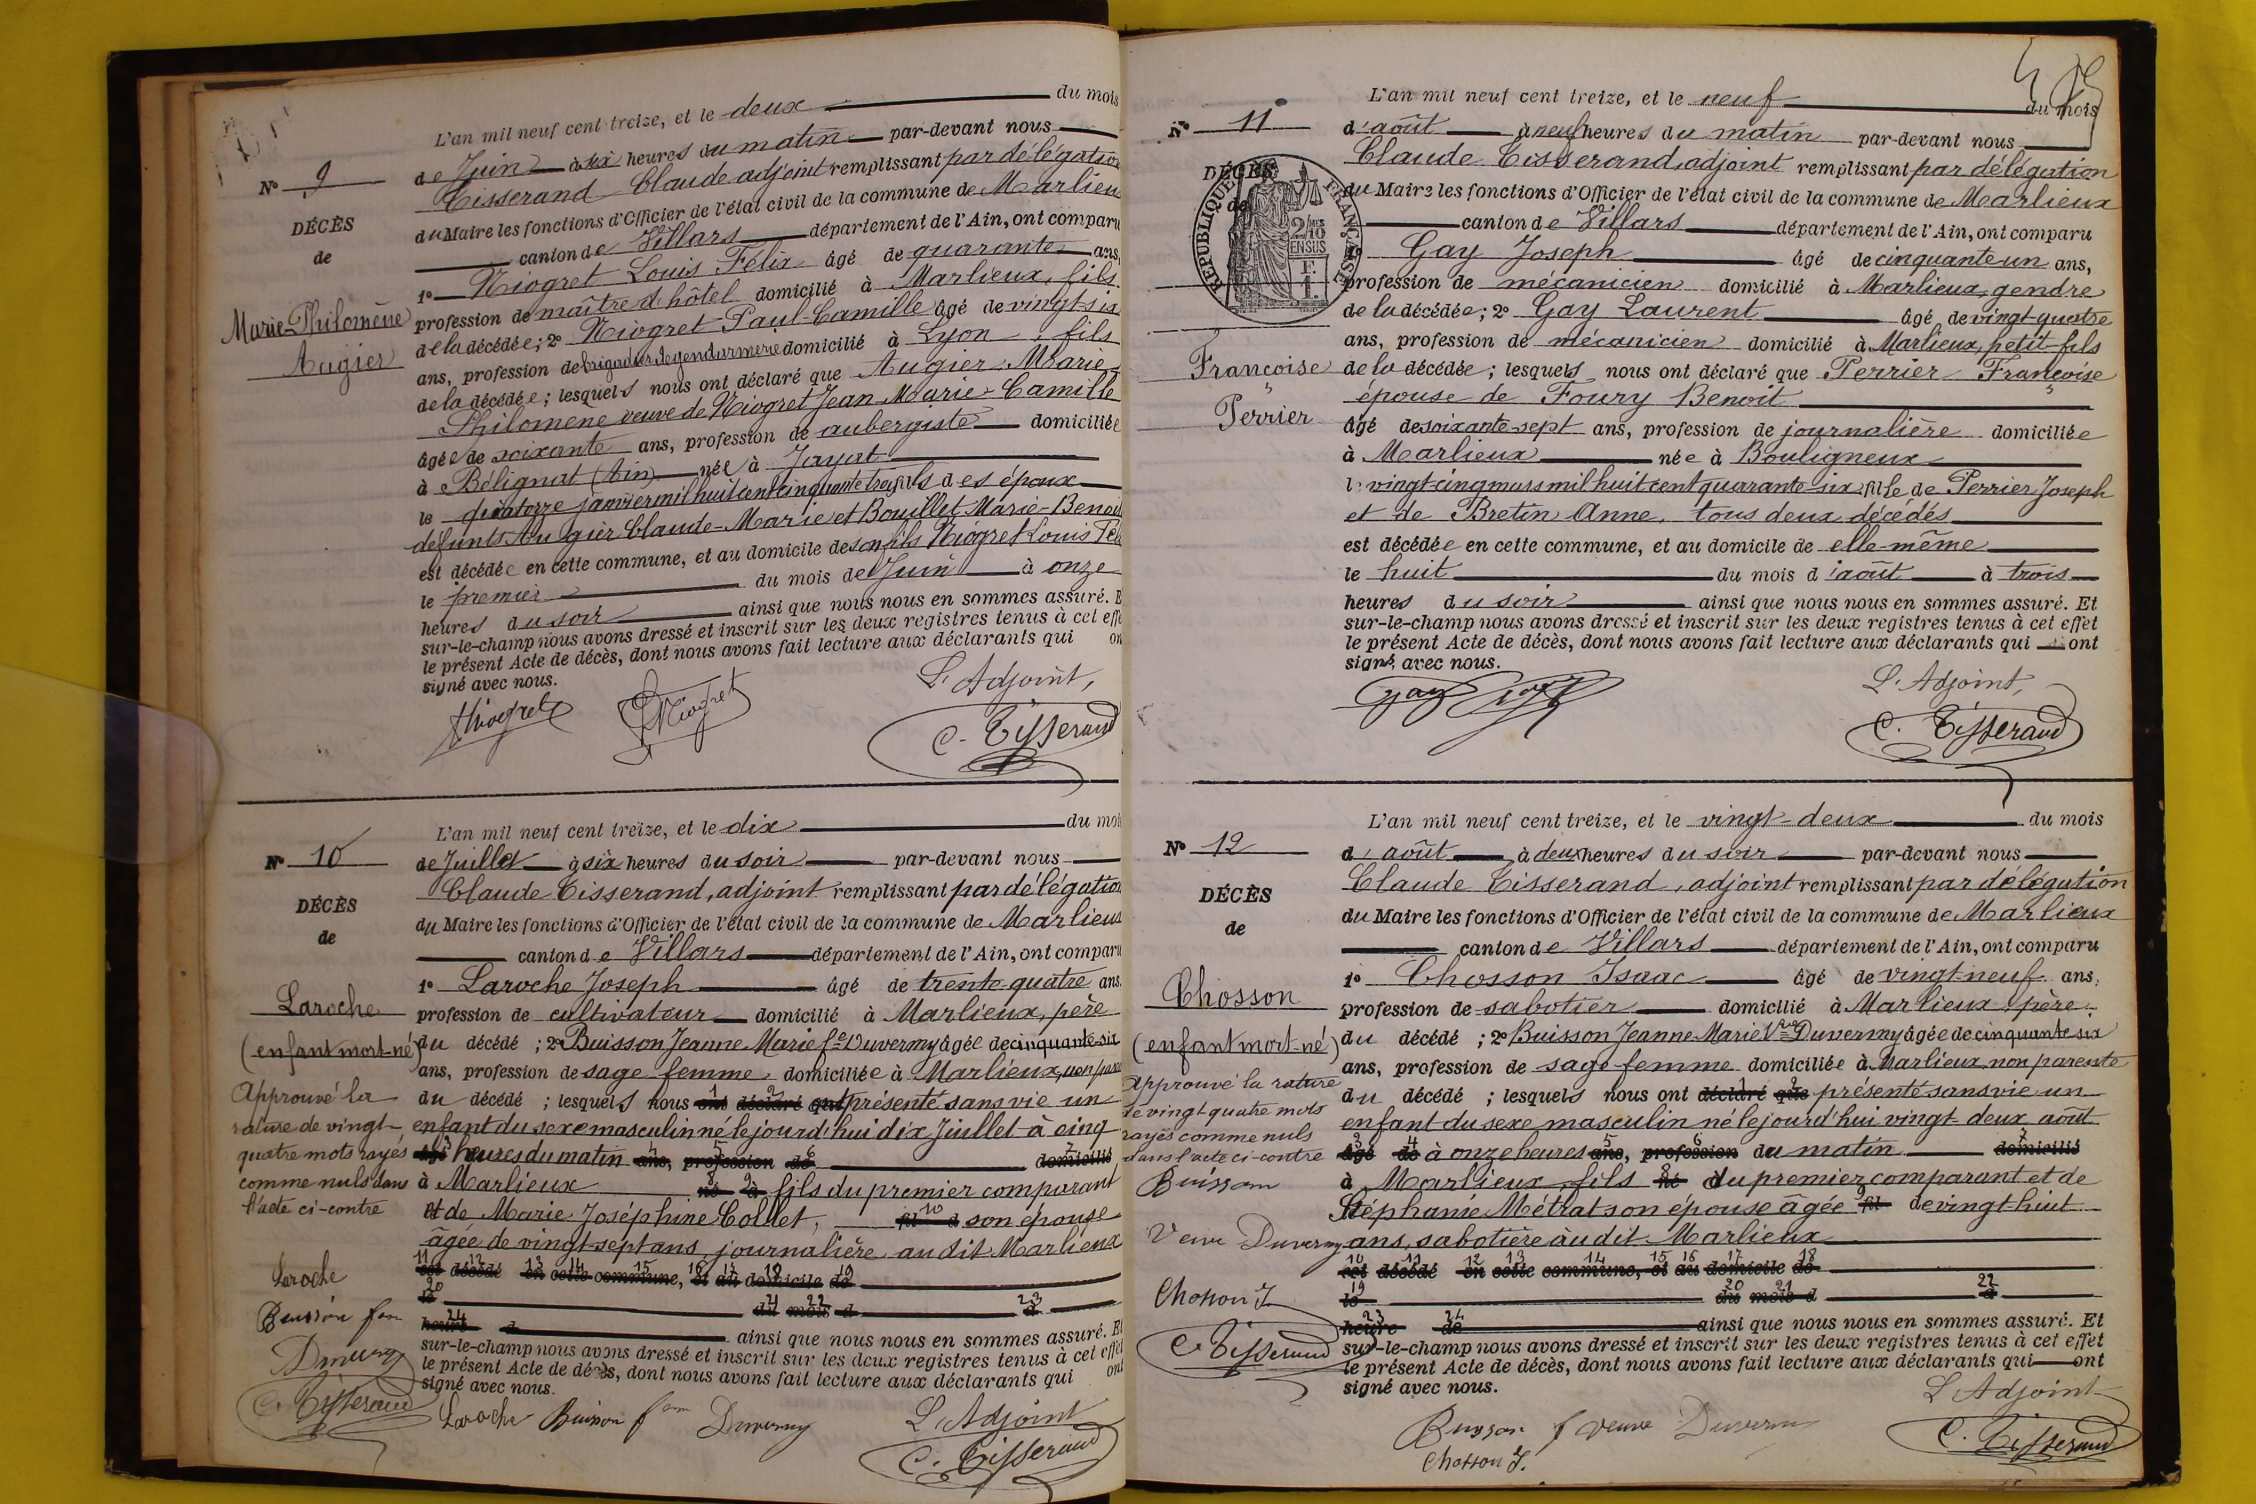 N° 9
DÉCÈS
de
Marie-Philomène
Augier
L'an mil neuf cent treize, et le deux du mois
de Juin à six heures du matin par-devant nous
Tisserand Claude adjoint remplissant par délégation
du Maire les fonctions d'Officier de l'état civil de la commune de Marlieux
canton de Villars département de l'Ain, ont comparu
1° Niogret Louis Félix âgé de quarante ans,
profession de maître d'hôtel domicilié à Marlieux, fils
de la décédée; 2° Niogret Paul-Camille âgé de vingt-six
ans, profession de brigadier de gendarmerie domicilié à Lyon, fils
de la décédée; lesquels nous ont déclaré que Augier Marie-
Philomène veuve de Niogret Jean Marie-Camille
âgée de soixante ans, profession de aubergiste domiciliée
à Bélignat (Ain) née à Jayat
le quatorze janvier mil huit cent cinquante trois fils des époux
défunts Augier Claude-Marie et Bouillet Marie-Benoit
est décédée en cette commune, et au domicile de son fils Niogret Louis Féli
le premier du mois de Juin à onze
heures du soir ainsi que nous nous en sommes assuré. E
sur-le-champ nous avons dressé et inscrit sur les deux registres tenus à cet effe
le présent Acte de décès, dont nous avons fait lecture aux déclarants qui on
signé avec nous.
L'Adjoint,
Niogret Niogret C. Tisserand
N° 10
DÉCÈS
de
Laroche
(enfant mort-né)
Approuvé la
rature de vingt-
quatre mots rayés
comme nuls dans
l'acte ci-contre
Laroche
Buisson fem
Duvernay
C. Tisserand
L'an mil neuf cent treize, et le dix du mois
de Juillet à six heures du soir par-devant nous
Claude Tisserand, adjoint remplissant par délégation
du Maire les fonctions d'Officier de l'état civil de la commune de Marlieux
canton de Villars département de l'Ain, ont comparu
1° Laroche Joseph âgé de trente-quatre ans,
profession de cultivateur domicilié à Marlieux, père
du décédé; 2° Buisson Jeanne Marie fe Duvernay âgée de cinquante-six
ans, profession de sage femme domiciliée à Marlieux, non paren
du décédé; lesquels nous ont 1 déclaré 2 que présenté sans vie un
enfant du sexe masculin né le jourd'hui dix Juillet à cinq
âgé 3 heures du matin ans, 5 profession 6 de domicilié 7
à Marlieux né 8 à 9 fils du premier comparant
et de Marie Joséphine Collet, fil 10 d son épouse
âgée de vingt-sept ans, journalière, au dit Marlieux
11 est 12 décédé 13 en 14 cette 15 commune, 16 et 17 au 18 domicile 19 de
20 le 21 du 22 mois d 23 à
24 heure d ainsi que nous nous en sommes assuré. Et
sur-le-champ nous avons dressé et inscrit sur les deux registres tenus à cet effet
le présent Acte de décès, dont nous avons fait lecture aux déclarants qui ont
signé avec nous.
Laroche Buisson fem Duvernay L'Adjoint
C. Tisserand
N° 11
DÉCÈS
de
RÉPUBLIQUE FRANÇAISE
2/10 EN SUS
F. 1.
Françoise
Perrier
L'an mil neuf cent treize, et le neuf du mois
d'août à neuf heures du matin par-devant nous
Claude Tisserand, adjoint remplissant par délégation
du Maire les fonctions d'Officier de l'état civil de la commune de Marlieux
canton de Villars département de l'Ain, ont comparu
Gay Joseph âgé de cinquante un ans,
profession de mécanicien domicilié à Marlieux, gendre
de la décédée; 2° Gay Laurent âgé de vingt-quatre
ans, profession de mécanicien domicilié à Marlieux, petit-fils
de la décédée; lesquels nous ont déclaré que Perrier Françoise
épouse de Foury Benoit
âgé de soixante-sept ans, profession de journalière domiciliée
à Marlieux née à Bouligneux
le vingt-cinq mars mil huit cent quarante-six fille de Perrier Joseph
et de Bretin Anne, tous deux décédés
est décédée en cette commune, et au domicile de elle-même
le huit du mois d'août à trois
heures du soir ainsi que nous nous en sommes assuré. Et
sur-le-champ nous avons dressé et inscrit sur les deux registres tenus à cet effet
le présent Acte de décès, dont nous avons fait lecture aux déclarants qui ont
signé avec nous.
L'Adjoint,
Gay Gay C. Tisserand
N° 12
DÉCÈS
de
Chosson
(enfant mort-né)
Approuvé la rature
de vingt quatre mots
rayés comme nuls
dans l'acte ci-contre
Buisson
Veuve Duvernay
Chosson J.
C. Tisserand
L'an mil neuf cent treize, et le vingt-deux du mois
d'août à deux heures du soir par-devant nous
Claude Tisserand, adjoint remplissant par délégation
du Maire les fonctions d'Officier de l'état civil de la commune de Marlieux
canton de Villars département de l'Ain, ont comparu
1° Chosson Isaac âgé de vingt-neuf ans,
profession de sabotier domicilié à Marlieux, père
du décédé; 2° Buisson Jeanne-Marie Vve Duvernay âgée de cinquante-six
ans, profession de sage femme domiciliée à Marlieux, non parente
du décédé; lesquels nous ont déclaré 1 que 2 présenté sans vie un
enfant du sexe masculin né le jourd'hui vingt-deux août
âgé 3 de 4 à onze heures ans, 5 profession 6 du matin domicilié 7
à Marlieux, fils né 8 du premier comparant et de
Stéphanie Métrat son épouse âgée fil 9 de vingt-huit
ans, sabotière au dit Marlieux
10 est 11 décédé 12 en 13 cette 14 commune, 15 et 16 au 17 domicile 18 de
19 le 20 du 21 mois d 22 à
23 heure 24 de ainsi que nous nous en sommes assuré. Et
sur-le-champ nous avons dressé et inscrit sur les deux registres tenus à cet effet
le présent Acte de décès, dont nous avons fait lecture aux déclarants qui ont
signé avec nous.
L'Adjoint
Buisson f veuve Duvernay C. Tisserand
Chosson J.